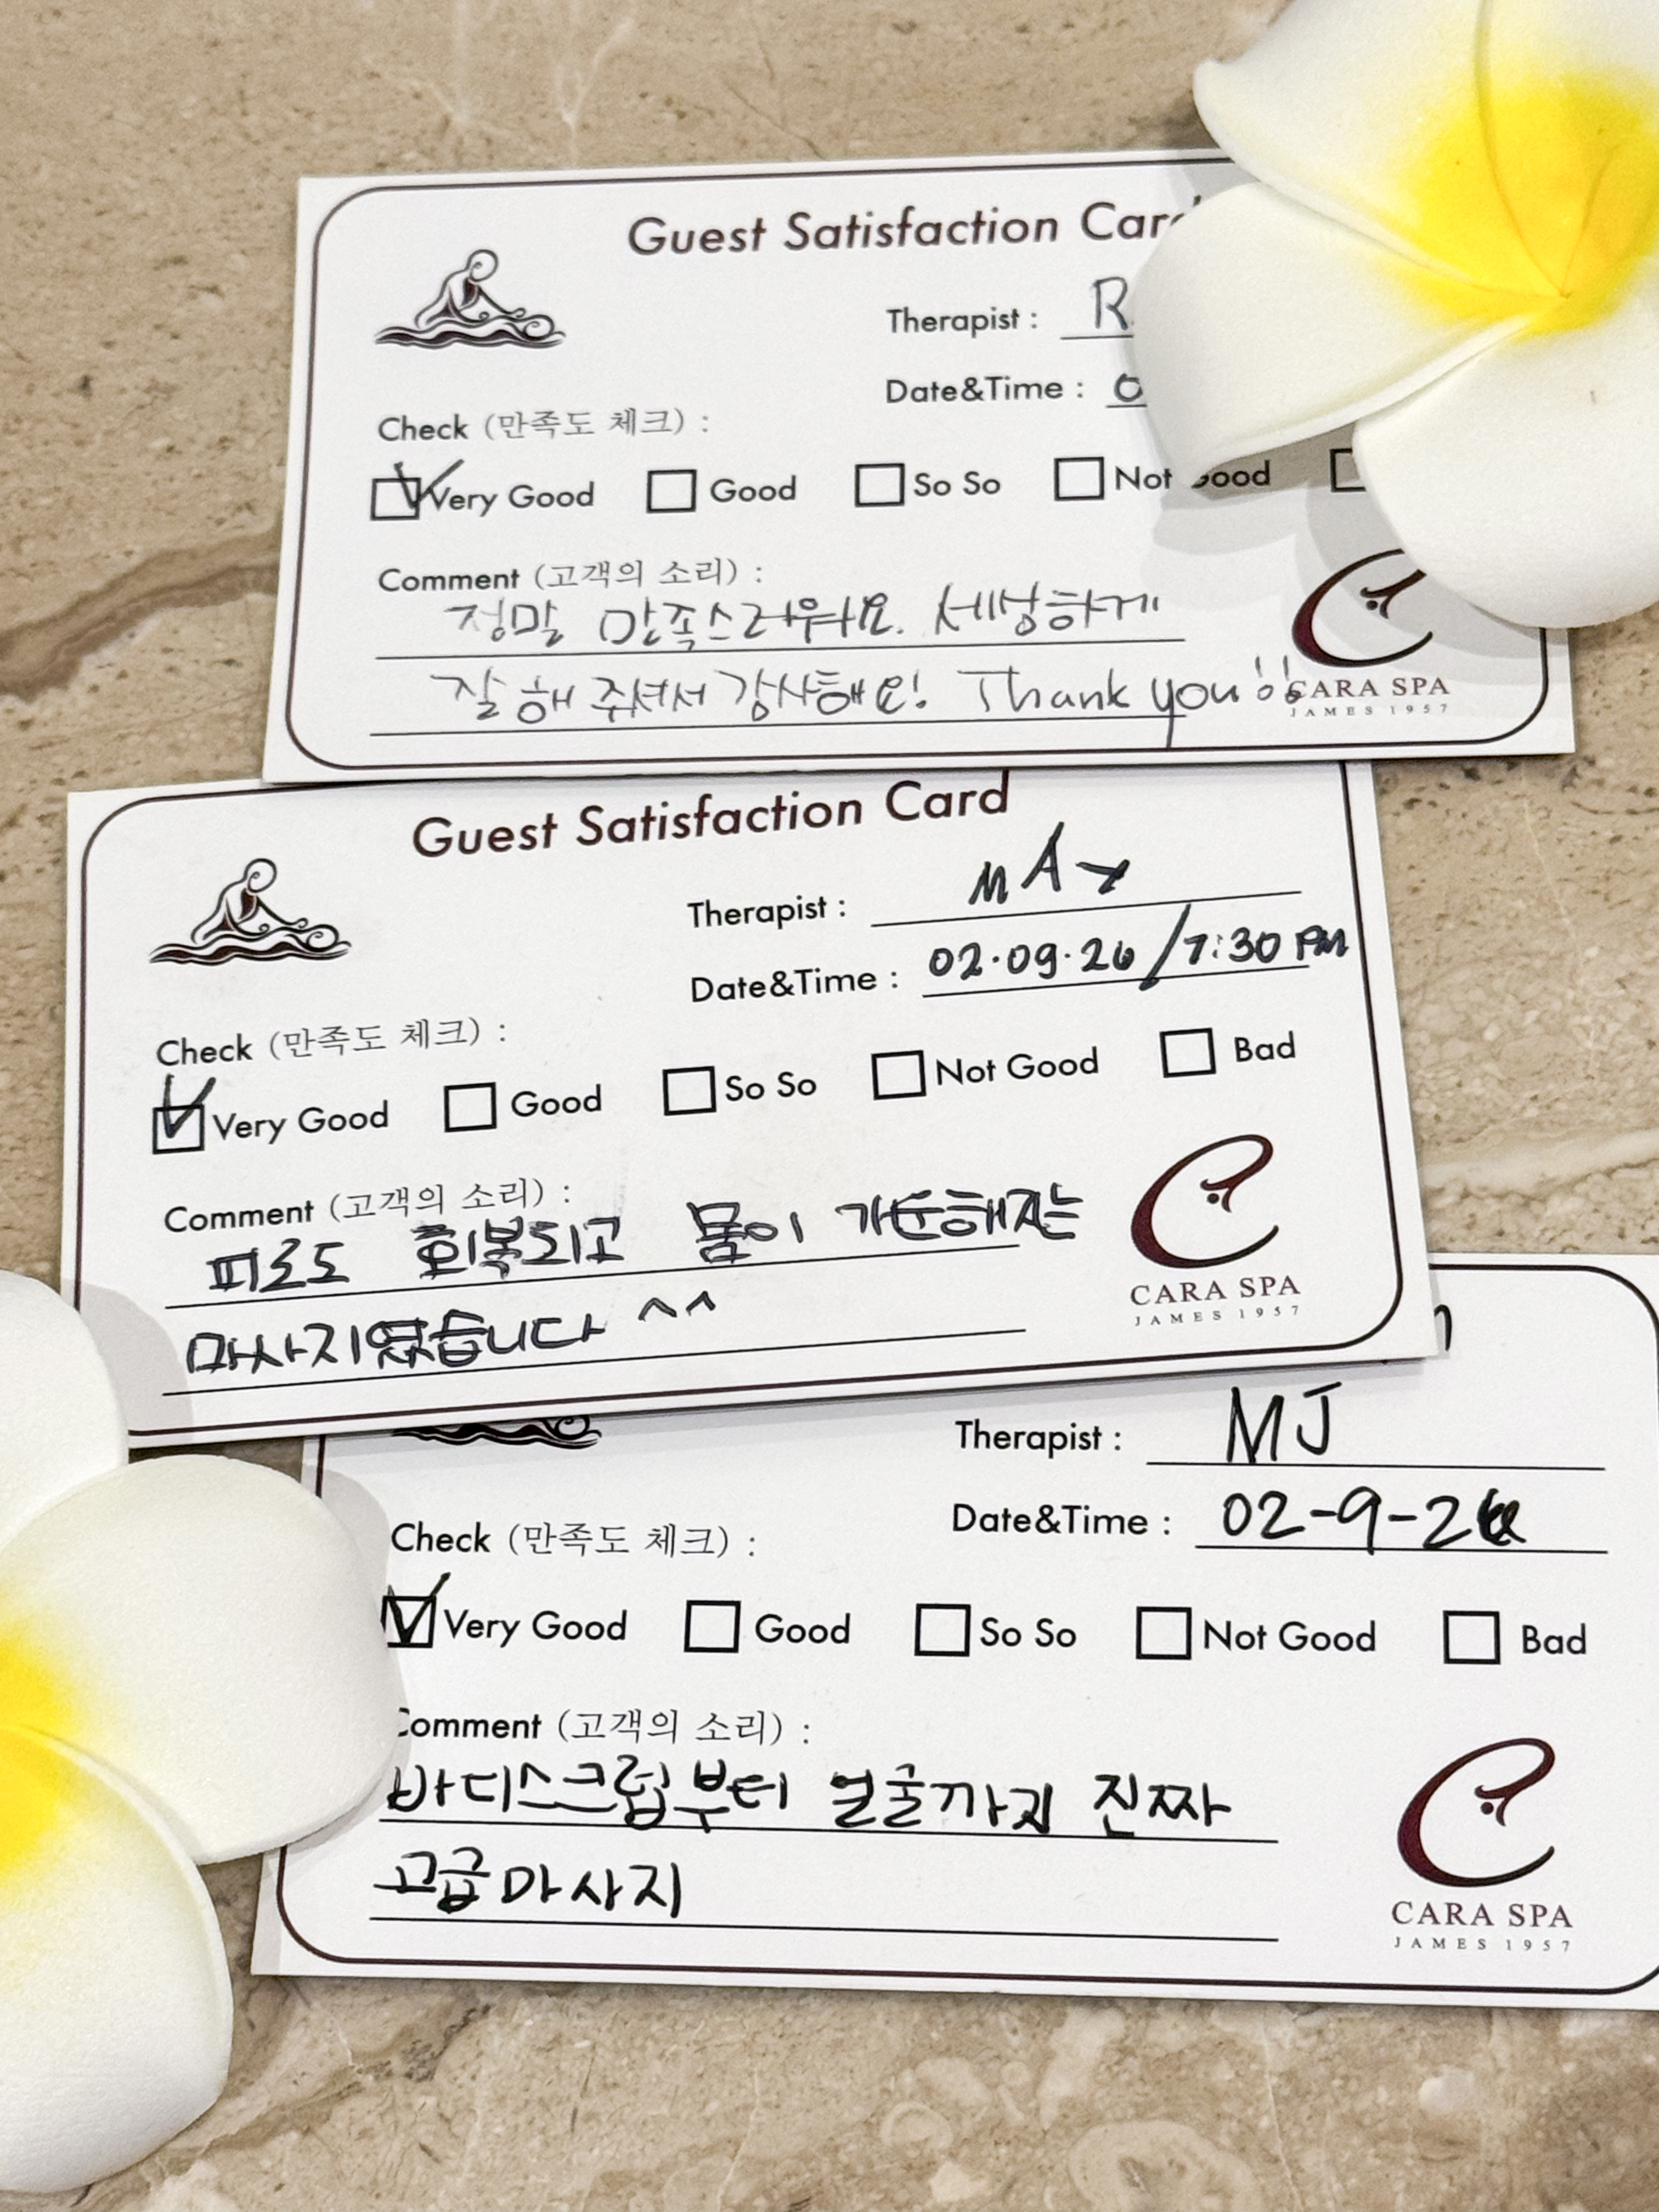 Guest Satisfaction Card
Therapist : R
Date&Time : 0
Check (만족도 체크) :
Very Good Good So So Not Good
Comment (고객의 소리) :
정말 만족스러워요. 세심하게
잘 해 주셔서 감사해요! Thank you!!
CARA SPA
JAMES 1957
Guest Satisfaction Card
Therapist : MAX
Date&Time : 02.09.26/7:30 PM
Check (만족도 체크) :
Very Good Good So So Not Good Bad
Comment (고객의 소리) :
피로도 회복되고 몸이 가뿐해지는
마사지였습니다 ^^
CARA SPA
JAMES 1957
Therapist : MJ
Date&Time : 02-9-26
Check (만족도 체크) :
Very Good Good So So Not Good Bad
Comment (고객의 소리) :
바디스크럽부터 얼굴까지 진짜
고급마사지
CARA SPA
JAMES 1957